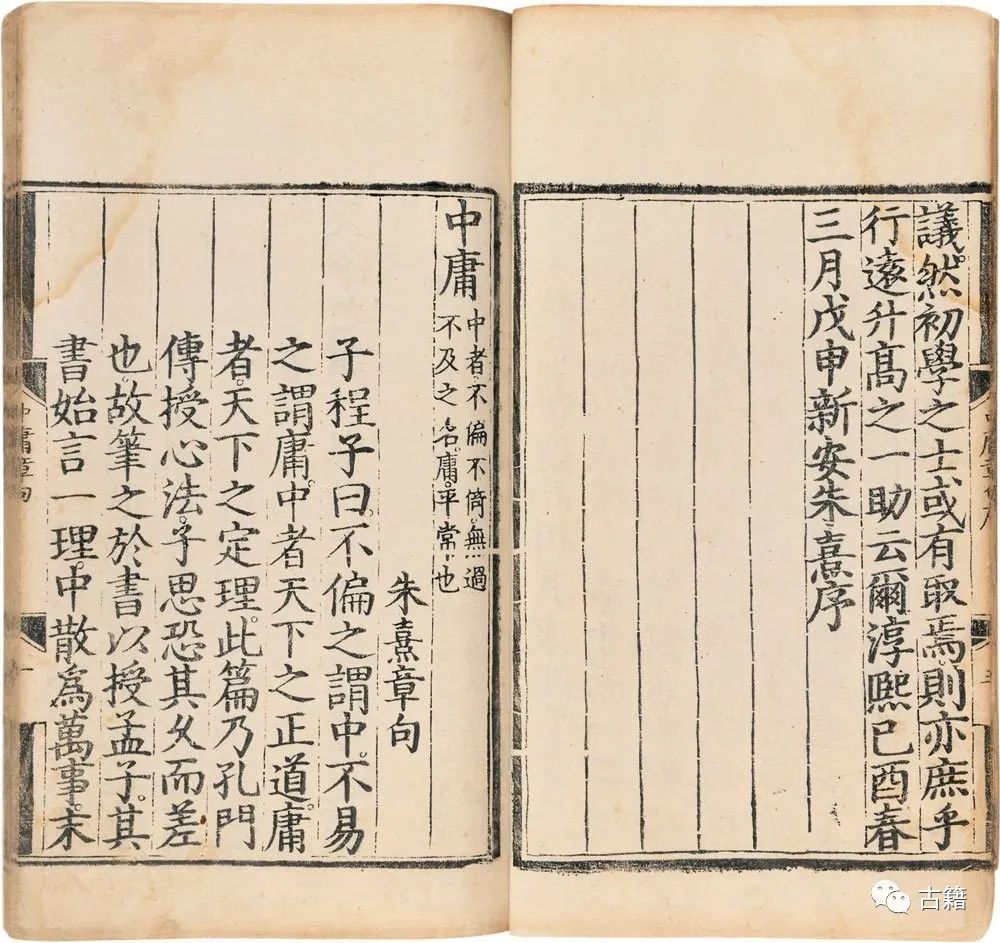 議然初學之士或有取焉則亦庶乎
行遠升高之一助云爾淳熙己酉春
三月戊申新安朱熹序
中庸
中者不偏不倚無過
不及之名庸平常也
朱熹章句
子程子曰不偏之謂中不易
之謂庸中者天下之正道庸
者天下之定理此篇乃孔門
傳授心法子思恐其久而差
也故筆之於書以授孟子其
書始言一理中散爲萬事末
中庸章句
古籍